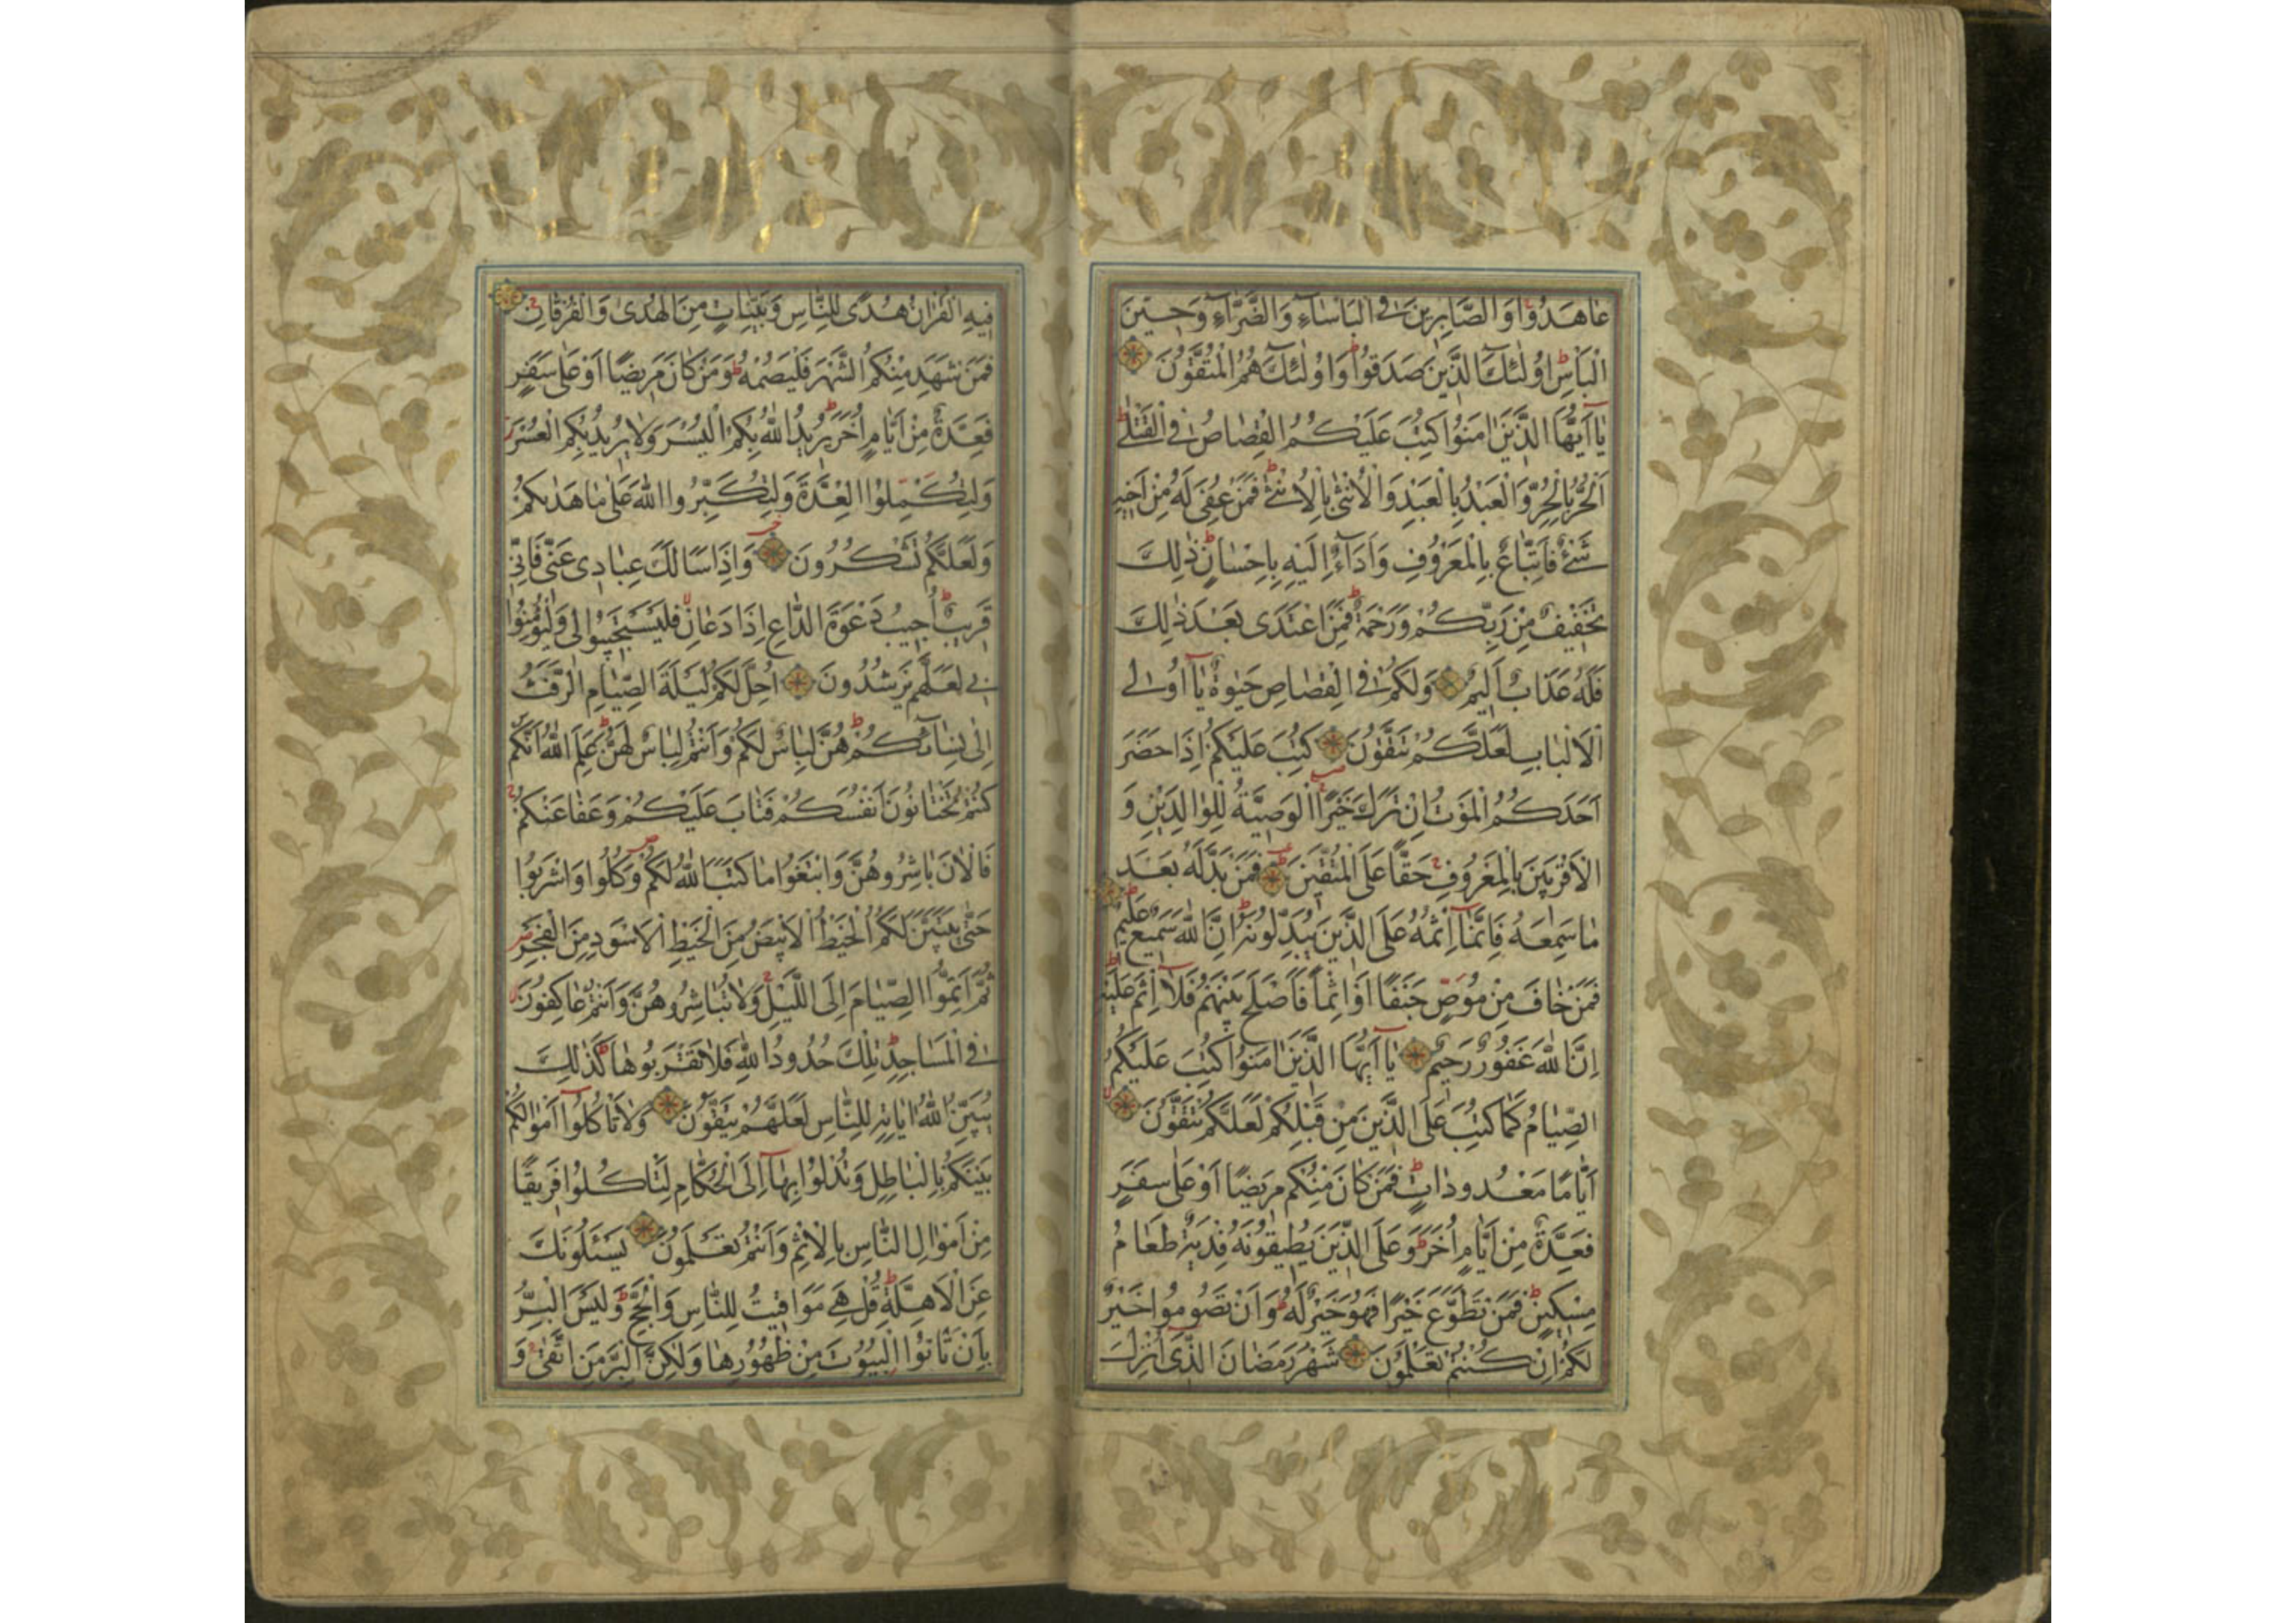 عَاهَدُوا وَالصَّابِرِينَ فِي الْبَأْسَاءِ وَالضَّرَّاءِ وَحِينَ
الْبَأْسِ أُولٰئِكَ الَّذِينَ صَدَقُوا وَأُولٰئِكَ هُمُ الْمُتَّقُونَ
يَا أَيُّهَا الَّذِينَ اٰمَنُوا كُتِبَ عَلَيْكُمُ الْقِصَاصُ فِي الْقَتْلٰى
اَلْحُرُّ بِالْحُرِّ وَالْعَبْدُ بِالْعَبْدِ وَالْأُنْثٰى بِالْأُنْثٰى فَمَنْ عُفِيَ لَهُ مِنْ أَخِيهِ
شَيْءٌ فَاتِّبَاعٌ بِالْمَعْرُوفِ وَأَدَاءٌ إِلَيْهِ بِإِحْسَانٍ ذٰلِكَ
تَخْفِيفٌ مِنْ رَبِّكُمْ وَرَحْمَةٌ فَمَنِ اعْتَدَى بَعْدَ ذٰلِكَ
فَلَهُ عَذَابٌ أَلِيمٌ وَلَكُمْ فِي الْقِصَاصِ حَيٰوةٌ يَا أُولِي
الْأَلْبَابِ لَعَلَّكُمْ تَتَّقُونَ كُتِبَ عَلَيْكُمْ إِذَا حَضَرَ
أَحَدَكُمُ الْمَوْتُ إِنْ تَرَكَ خَيْرًا الْوَصِيَّةُ لِلْوَالِدَيْنِ وَ
الْأَقْرَبِينَ بِالْمَعْرُوفِ حَقًّا عَلَى الْمُتَّقِينَ فَمَنْ بَدَّلَهُ بَعْدَ
مَا سَمِعَهُ فَإِنَّمَا إِثْمُهُ عَلَى الَّذِينَ يُبَدِّلُونَهُ إِنَّ اللّٰهَ سَمِيعٌ عَلِيمٌ
فَمَنْ خَافَ مِنْ مُوصٍ جَنَفًا أَوْ إِثْمًا فَأَصْلَحَ بَيْنَهُمْ فَلَا إِثْمَ عَلَيْهِ
إِنَّ اللّٰهَ غَفُورٌ رَحِيمٌ يَا أَيُّهَا الَّذِينَ اٰمَنُوا كُتِبَ عَلَيْكُمُ
الصِّيَامُ كَمَا كُتِبَ عَلَى الَّذِينَ مِنْ قَبْلِكُمْ لَعَلَّكُمْ تَتَّقُونَ
أَيَّامًا مَعْدُودَاتٍ فَمَنْ كَانَ مِنْكُمْ مَرِيضًا أَوْ عَلٰى سَفَرٍ
فَعِدَّةٌ مِنْ أَيَّامٍ أُخَرَ وَعَلَى الَّذِينَ يُطِيقُونَهُ فِدْيَةٌ طَعَامُ
مِسْكِينٍ فَمَنْ تَطَوَّعَ خَيْرًا فَهُوَ خَيْرٌ لَهُ وَأَنْ تَصُومُوا خَيْرٌ
لَكُمْ إِنْ كُنْتُمْ تَعْلَمُونَ شَهْرُ رَمَضَانَ الَّذِي أُنْزِلَ
فِيهِ الْقُرْاٰنُ هُدًى لِلنَّاسِ وَبَيِّنَاتٍ مِنَ الْهُدٰى وَالْفُرْقَانِ
فَمَنْ شَهِدَ مِنْكُمُ الشَّهْرَ فَلْيَصُمْهُ وَمَنْ كَانَ مَرِيضًا أَوْ عَلٰى سَفَرٍ
فَعِدَّةٌ مِنْ أَيَّامٍ أُخَرَ يُرِيدُ اللّٰهُ بِكُمُ الْيُسْرَ وَلَا يُرِيدُ بِكُمُ الْعُسْرَ
وَلِتُكْمِلُوا الْعِدَّةَ وَلِتُكَبِّرُوا اللّٰهَ عَلٰى مَا هَدٰىكُمْ
وَلَعَلَّكُمْ تَشْكُرُونَ وَإِذَا سَأَلَكَ عِبَادِي عَنِّي فَإِنِّي
قَرِيبٌ أُجِيبُ دَعْوَةَ الدَّاعِ إِذَا دَعَانِ فَلْيَسْتَجِيبُوا لِي وَلْيُؤْمِنُوا
بِي لَعَلَّهُمْ يَرْشُدُونَ أُحِلَّ لَكُمْ لَيْلَةَ الصِّيَامِ الرَّفَثُ
إِلٰى نِسَائِكُمْ هُنَّ لِبَاسٌ لَكُمْ وَأَنْتُمْ لِبَاسٌ لَهُنَّ عَلِمَ اللّٰهُ أَنَّكُمْ
كُنْتُمْ تَخْتَانُونَ أَنْفُسَكُمْ فَتَابَ عَلَيْكُمْ وَعَفَا عَنْكُمْ
فَالْاٰنَ بَاشِرُوهُنَّ وَابْتَغُوا مَا كَتَبَ اللّٰهُ لَكُمْ وَكُلُوا وَاشْرَبُوا
حَتّٰى يَتَبَيَّنَ لَكُمُ الْخَيْطُ الْأَبْيَضُ مِنَ الْخَيْطِ الْأَسْوَدِ مِنَ الْفَجْرِ
ثُمَّ أَتِمُّوا الصِّيَامَ إِلَى اللَّيْلِ وَلَا تُبَاشِرُوهُنَّ وَأَنْتُمْ عَاكِفُونَ
فِي الْمَسَاجِدِ تِلْكَ حُدُودُ اللّٰهِ فَلَا تَقْرَبُوهَا كَذٰلِكَ
يُبَيِّنُ اللّٰهُ اٰيَاتِهِ لِلنَّاسِ لَعَلَّهُمْ يَتَّقُونَ وَلَا تَأْكُلُوا أَمْوَالَكُمْ
بَيْنَكُمْ بِالْبَاطِلِ وَتُدْلُوا بِهَا إِلَى الْحُكَّامِ لِتَأْكُلُوا فَرِيقًا
مِنْ أَمْوَالِ النَّاسِ بِالْإِثْمِ وَأَنْتُمْ تَعْلَمُونَ يَسْئَلُونَكَ
عَنِ الْأَهِلَّةِ قُلْ هِيَ مَوَاقِيتُ لِلنَّاسِ وَالْحَجِّ وَلَيْسَ الْبِرُّ
بِأَنْ تَأْتُوا الْبُيُوتَ مِنْ ظُهُورِهَا وَلٰكِنَّ الْبِرَّ مَنِ اتَّقٰى وَ